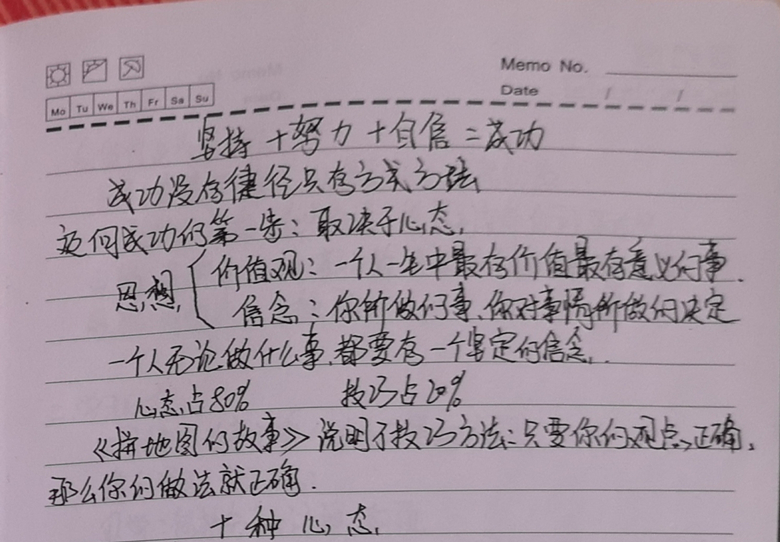 Memo No.
Date / /
Mo Tu We Th Fr Sa Su
坚持+努力+自信=成功
成功没有捷径只有方式方法
迈向成功的第一步：取决于心态.
思想 { 价值观：一个人一生中最有价值最有意义的事.
信念：你所做的事、你对事情所做的决定
一个人无论做什么事.都要有一个坚定的信念.
心态占80% 技巧占20%
《拼地图的故事》说明了技巧方法：只要你的观点正确,
那么你的做法就正确.
十种心态.